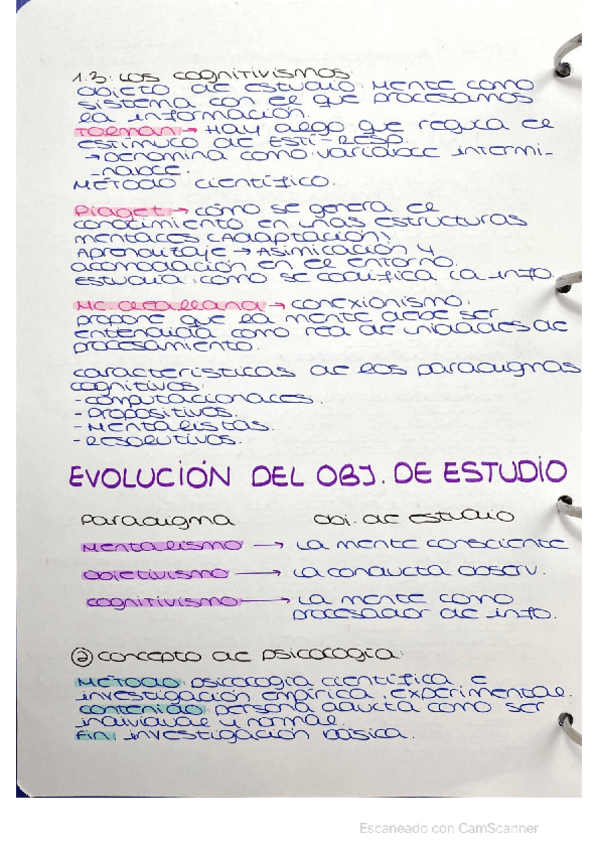 1.3. LOS COGNITIVISMOS:
OBJETO DE ESTUDIO: MENTE COMO
SISTEMA CON EL QUE PROCESAMOS
LA INFORMACIÓN.
TOLMAN → HAY ALGO QUE REGULA EL
ESTÍMULO DE ESTÍ-RESP.
→ DENOMINA COMO VARIABLE INTERMI-
-NABLE.
MÉTODO CIENTÍFICO.
PIAGET → CÓMO SE GENERA EL
CONOCIMIENTO EN UNAS ESTRUCTURAS
MENTALES (ADAPTACIÓN).
APRENDIZAJE → ASIMILACIÓN Y
ACOMODACIÓN EN EL ENTORNO.
ESTUDIA: CÓMO SE CODIFICA LA INFO.
→ CONEXIONISMO:
PROPONE QUE LA MENTE DEBE SER
ENTENDIDA COMO RED DE UNIDADES DE
PROCESAMIENTO.
CARACTERÍSTICAS DE LOS PARADIGMAS
COGNITIVOS:
- COMPUTACIONALES.
- PROPOSITIVOS.
- MENTALISTAS.
- RESOLUTIVOS.
EVOLUCIÓN DEL OBJ. DE ESTUDIO
PARADIGMA OBJ. DE ESTUDIO
MENTALISMO → LA MENTE CONSCIENTE
OBJETIVISMO → LA CONDUCTA OBSERV.
COGNITIVISMO → LA MENTE COMO
PROCESADOR DE INFO.
② CONCEPTO DE PSICOLOGÍA:
MÉTODO: PSICOLOGÍA CIENTÍFICA E
INVESTIGACIÓN EMPÍRICA, EXPERIMENTAL.
CONTENIDO: PERSONA ADULTA COMO SER
INDIVIDUAL Y NORMAL.
FIN: INVESTIGACIÓN BÁSICA.
Escaneado con CamScanner